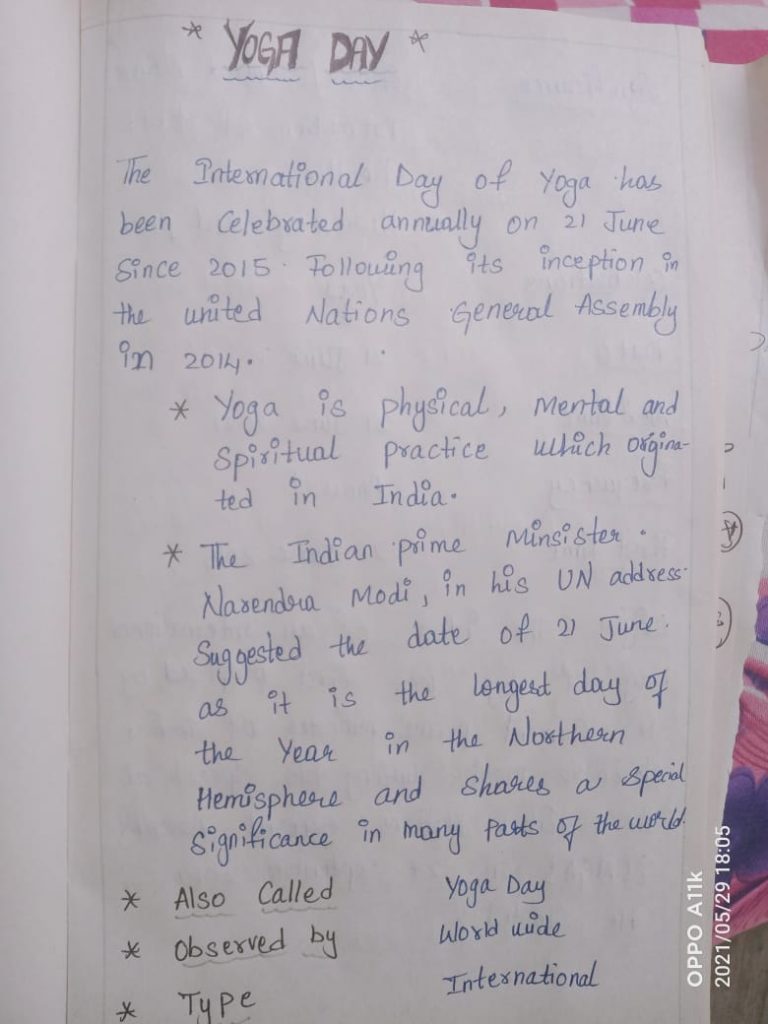 * YOGA DAY *
The International Day of Yoga has
been Celebrated annually on 21 June
Since 2015. Following its inception in
the united Nations General Assembly
in 2014.
* Yoga is physical, Mental and
Spiritual practice which orgina-
ted in India.
* The Indian prime Minsister.
Narendra Modi, in his UN address
Suggested the date of 21 June.
as it is the longest day of
the Year in the Northern
Hemisphere and shares a special
Significance in many parts of the world.
* Also Called Yoga Day
* Observed by World wide
* Type International
OPPO A11k
2021/05/29 18:05